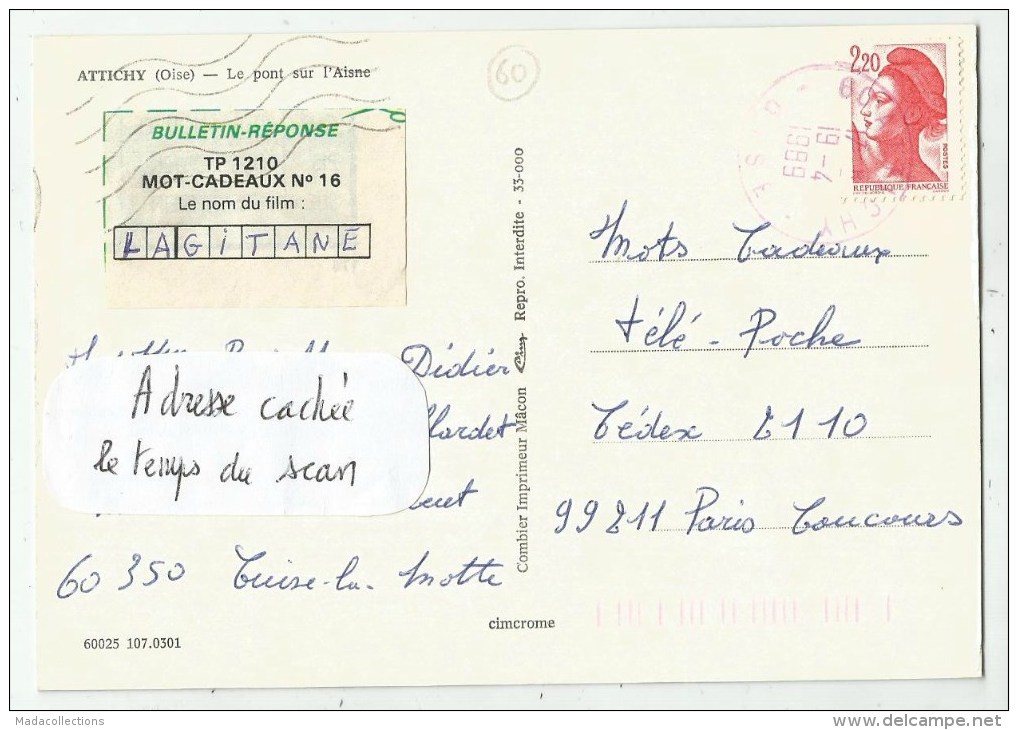 ATTICHY (Oise) — Le pont sur l'Aisne
60
BULLETIN-RÉPONSE
TP 1210
MOT-CADEAUX Nº 16
Le nom du film :
LAGITANE
2,20
POSTES
REPUBLIQUE FRANÇAISE
19-4
1989
Mots Cadeaux
télé-Poche
Cédex 2110
99211 Paris Concours
Didier
Adresse cachée
le temps du scan
60 350 Cuise-la-Motte
Combier Imprimeur Mâcon Cim Repro. Interdite - 33-000
cimcrome
60025 107.0301
Madacollections
delcampe.net